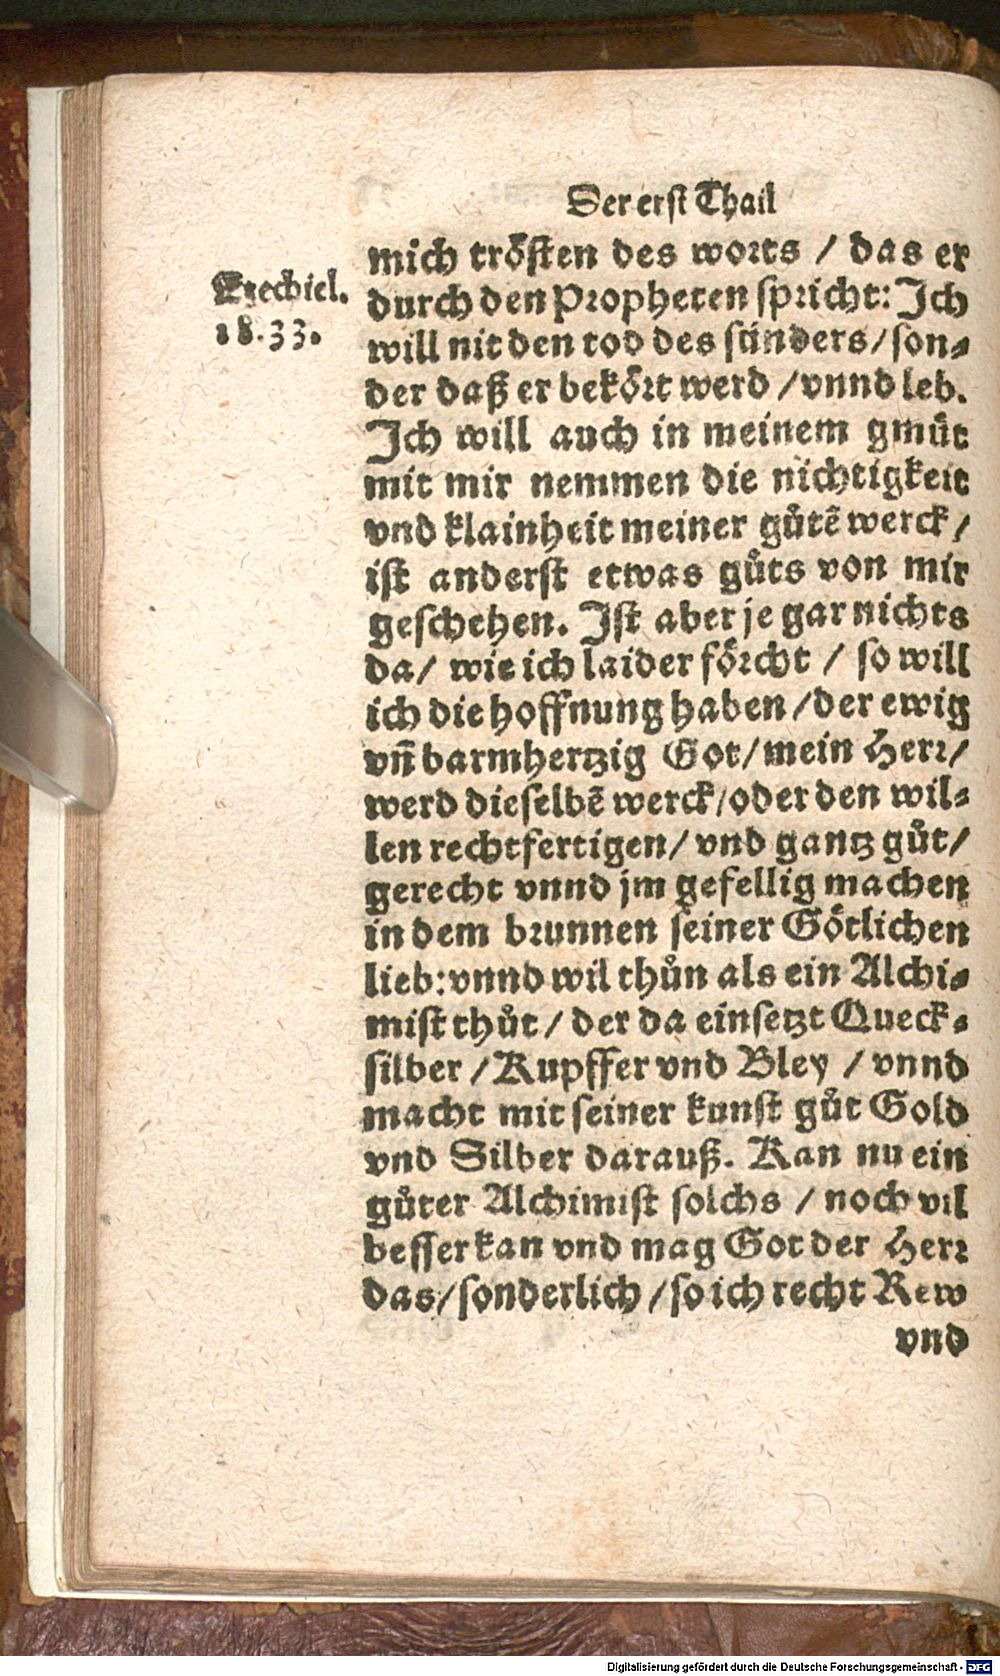 Der erst Thail
Ezechiel.
18.33.
mich trösten des worts / das er
durch den Propheten spricht: Ich
will nit den tod des sünders / son⸗
der daß er bekört werd / vnnd leb.
Ich will auch in meinem gmüt
mit mir nemmen die nichtigkeit
vnd klainheit meiner gůtẽ werck /
ist anderst etwas gůts von mir
geschehen. Ist aber je gar nichts
da / wie ich laider förcht / so will
ich die hoffnung haben / der ewig
vñ barmhertzig Got / mein Herr /
werd dieselbẽ werck / oder den wil⸗
len rechtfertigen / vnd gantz gůt /
gerecht vnnd jm gefellig machen
in dem brunnen seiner Götlichen
lieb: vnnd wil thůn als ein Alchi⸗
mist thůt / der da einsetzt Queck⸗
silber / Kupffer vnd Bley / vnnd
macht mit seiner kunst gůt Gold
vnd Silber darauß. Kan nu ein
gůter Alchimist solchs / noch vil
besser kan vnd mag Got der Herr
das / sonderlich / so ich recht Rew
vnd
Digitalisierung gefördert durch die Deutsche Forschungsgemeinschaft - DFG